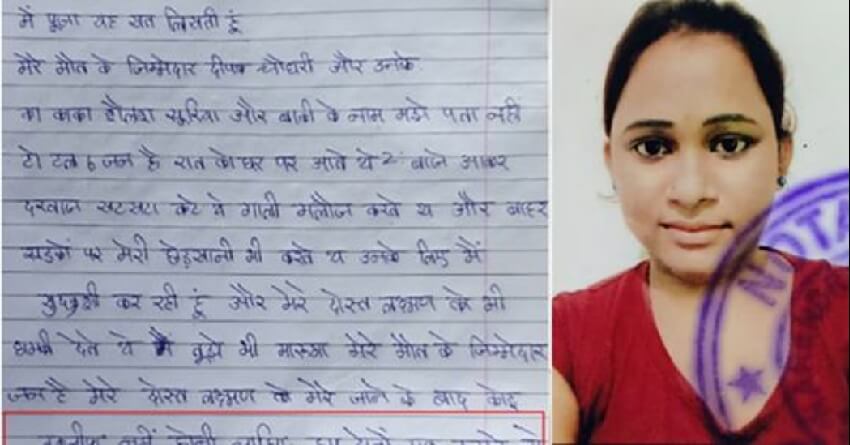 में पुजा यह खत लिखती हूं
मेरे मौत के जिम्मेदार दीपक चौधरी और उनके
का काका और बाकी के नाम मुझे पता नहीं
टोटल 6 जन है रात को घर पर आते थे 2 बाजे आकर
दरवाज खटखटा गाली गलौज करते थ और बाहर
सड़कों पर मेरी छेड़खानी भी करते थ उनके लिए में
खुदखुशी कर रही हूं और मेरे दोस्त लक्ष्मण को भी
धमकी देते थे में तुझे भी मेरे मौत के जिम्मेदार
जन है मेरे दोस्त लक्ष्मण को मेरे जाने के बाद कोई
NOTA